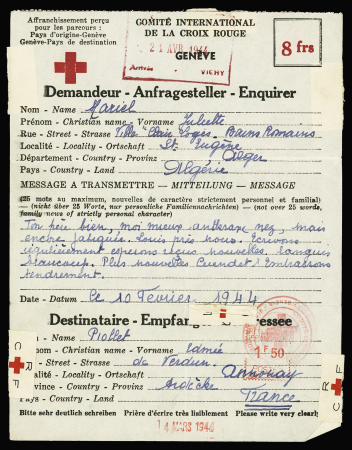 Affranchissement perçu
pour les parcours :
Pays d'origine-Genève
Genève-Pays de destination
COMITÉ INTERNATIONAL
DE LA CROIX ROUGE
GENÈVE
8 frs
21 AVR 1944
Arrivée
VICHY
Demandeur - Anfragesteller - Enquirer
Nom - Name Mariel
Prénom - Christian name - Vorname Juliette
Rue - Street - Strasse Villa Bains Romains
Localité - Locality - Ortschaft St. Eugène
Département - Country - Provinz Alger
Pays - Country - Land Algérie
MESSAGE A TRANSMETTRE — MITTEILUNG — MESSAGE
(25 mots au maximum, nouvelles de caractère strictement personnel et familial)
— (nicht über 25 Worte, nur persönliche Familiennachrichten) — (not over 25 words,
family news of strictly personal character)
Ton père bien, moi mieux anthrax nez, mais
encore fatiguée. Louis près nous. Ecrivons
régulièrement espérons reçus nouvelles. Langues
beaucoup. Plus nouvelles Cuendet. T'Embrassons
tendrement.
Date - Datum Ce 10 Fevrier 1944
Destinataire - Empfang essee
- Name Piollet
- Christian name - Vorname Edmée
- Street - Strasse de Verdun
alité - Locality - Ortschaft Annonay
vince - Country - Provinz Ardèche
- Country - Land France
1F50
C R F
C R F
Bitte sehr deutlich schreiben Prière d'écrire très lisiblement Please write very clearly
14 MARS 1944